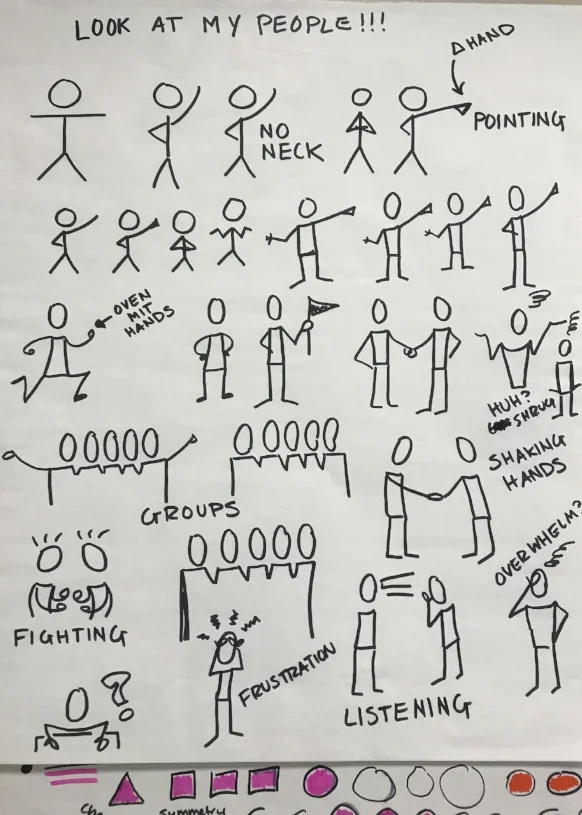 LOOK AT MY PEOPLE!!!
Δ HAND
NO
NECK
POINTING
OVEN
MIT
HANDS
HUH?
SHRUG
SHAKING
HANDS
GROUPS
OVERWHELM?
FIGHTING
FRUSTRATION
?
LISTENING
symmetry